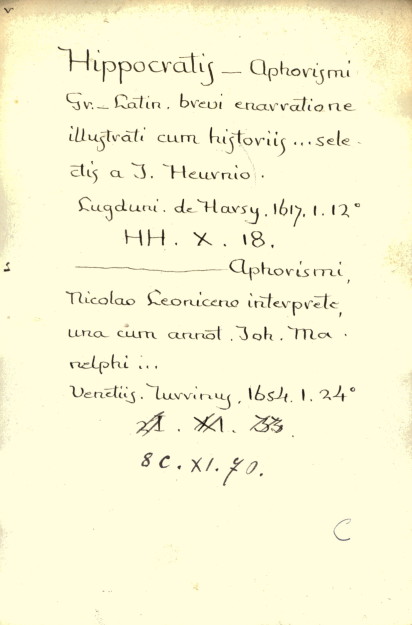 Hippocratis — Aphorismi
Gr. – Latin. brevi enarratione
illustrati cum historiis ... sele-
ctis a J. Heurnio.
Lugduni. de Harsy. 1617. 1. 12°
HH. X. 18.
——— Aphorismi,
Nicolao Leoniceno interprete,
una cum annot. Joh. Ma-
nelphi ...
Venetiis. Turrinus, 1654. 1. 24°
XI. 33.
8 C. XI. 70.
C